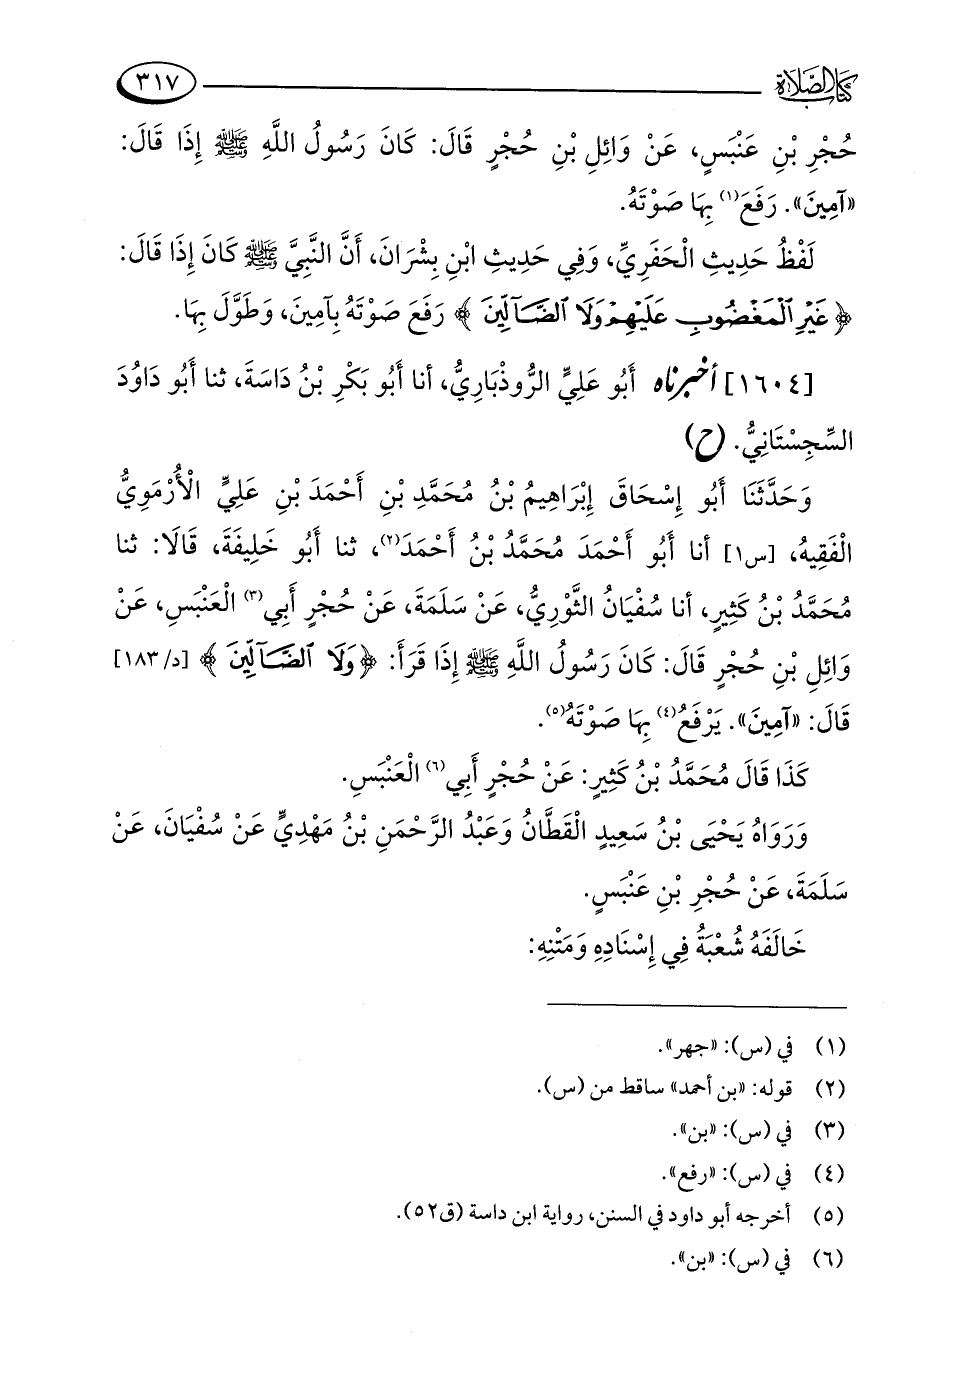 كتاب الصلاة ٣١٧
حُجْرِ بْنِ عَنْبَسٍ، عَنْ وَائِلِ بْنِ حُجْرٍ قَالَ: كَانَ رَسُولُ اللَّهِ ﷺ إِذَا قَالَ:
«آمِينَ». رَفَعَ(١) بِهَا صَوْتَهُ.
لَفْظُ حَدِيثِ الْحَفَرِيِّ، وَفِي حَدِيثِ ابْنِ بِشْرَانَ، أَنَّ النَّبِيَّ ﷺ كَانَ إِذَا قَالَ:
﴿غَيْرِ ٱلْمَغْضُوبِ عَلَيْهِمْ وَلَا ٱلضَّآلِّينَ﴾ رَفَعَ صَوْتَهُ بِآمِينَ، وَطَوَّلَ بِهَا.
[١٦٠٤] أخبرناه أَبُو عَلِيٍّ الرُّوذْبَارِيُّ، أنا أَبُو بَكْرِ بْنُ دَاسَةَ، ثنا أَبُو دَاوُدَ
السِّجِسْتَانِيُّ. (ح)
وَحَدَّثَنَا أَبُو إِسْحَاقَ إِبْرَاهِيمُ بْنُ مُحَمَّدِ بْنِ أَحْمَدَ بْنِ عَلِيٍّ الْأُرْمَوِيُّ
الْفَقِيهُ، [س١] أنا أَبُو أَحْمَدَ مُحَمَّدُ بْنُ أَحْمَدَ(٢)، ثنا أَبُو خَلِيفَةَ، قَالَا: ثنا
مُحَمَّدُ بْنُ كَثِيرٍ، أنا سُفْيَانُ الثَّوْرِيُّ، عَنْ سَلَمَةَ، عَنْ حُجْرٍ أَبِي(٣) الْعَنْبَسِ، عَنْ
وَائِلِ بْنِ حُجْرٍ قَالَ: كَانَ رَسُولُ اللَّهِ ﷺ إِذَا قَرَأَ: ﴿وَلَا ٱلضَّآلِّينَ﴾ [د/ ١٨٣]
قَالَ: «آمِينَ». يَرْفَعُ(٤) بِهَا صَوْتَهُ(٥).
كَذَا قَالَ مُحَمَّدُ بْنُ كَثِيرٍ: عَنْ حُجْرٍ أَبِي(٦) الْعَنْبَسِ.
وَرَوَاهُ يَحْيَى بْنُ سَعِيدٍ الْقَطَّانُ وَعَبْدُ الرَّحْمَنِ بْنُ مَهْدِيٍّ عَنْ سُفْيَانَ، عَنْ
سَلَمَةَ، عَنْ حُجْرِ بْنِ عَنْبَسٍ.
خَالَفَهُ شُعْبَةُ فِي إِسْنَادِهِ وَمَتْنِهِ:
(١) في (س): «جهر».
(٢) قوله: «بن أحمد» ساقط من (س).
(٣) في (س): «بن».
(٤) في (س): «رفع».
(٥) أخرجه أبو داود في السنن، رواية ابن داسة (ق٥٢).
(٦) في (س): «بن».